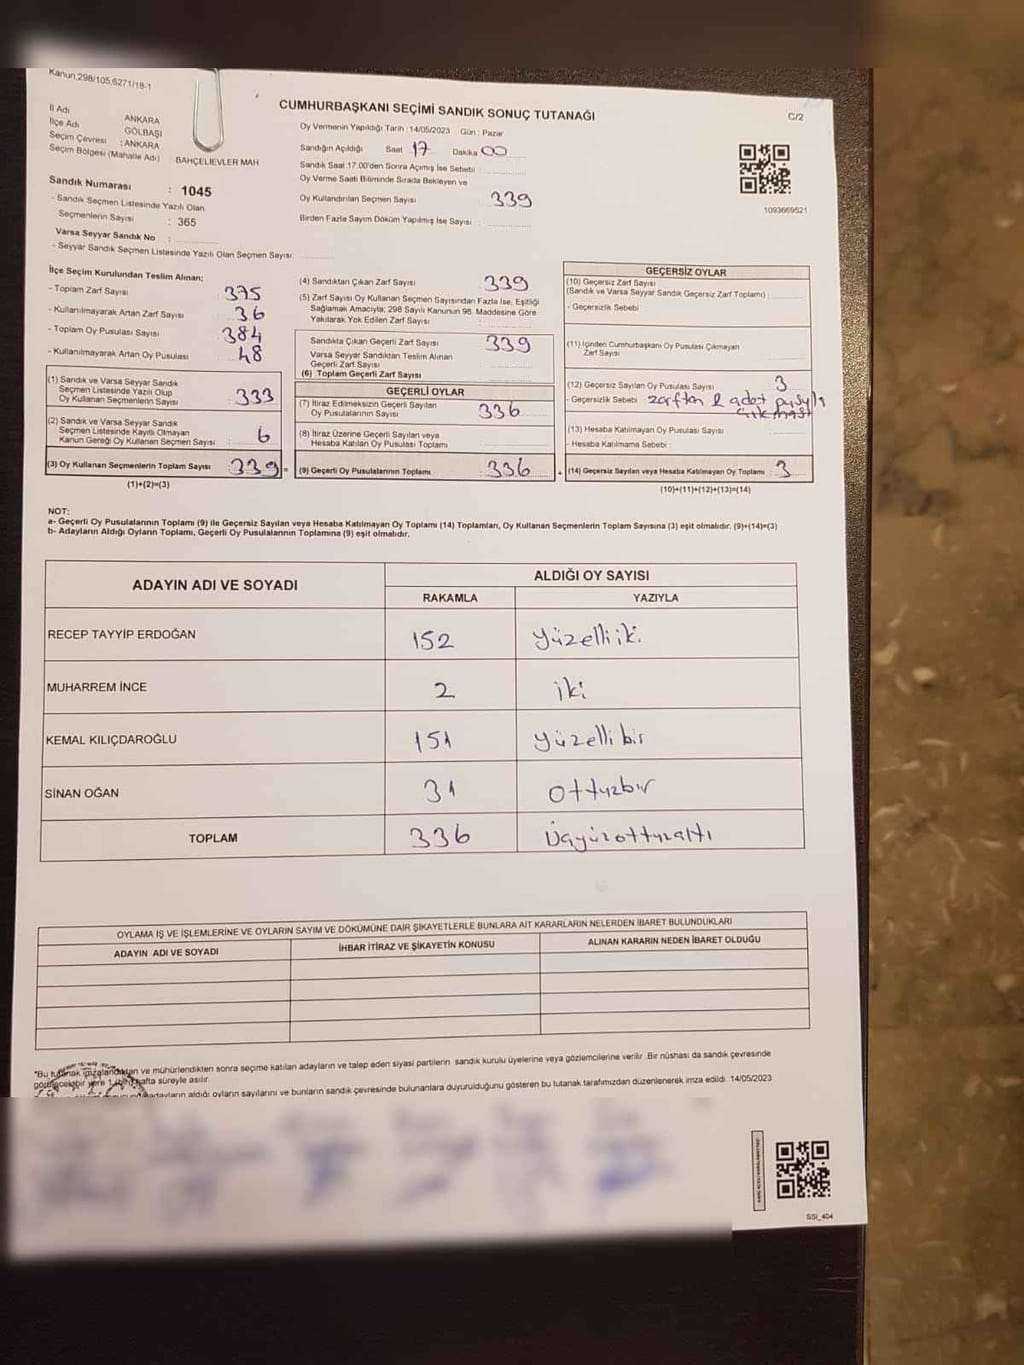 Kanun:298/105,6271/18-1
CUMHURBAŞKANI SEÇİMİ SANDIK SONUÇ TUTANAĞI
C/2
İl Adı ANKARA
İlçe Adı GÖLBAŞI
Seçim Çevresi : ANKARA
Seçim Bölgesi (Mahalle Adı) BAHÇELİEVLER MAH
Sandık Numarası : 1045
- Sandık Seçmen Listesinde Yazılı Olan
Seçmenlerin Sayısı : 365
Varsa Seyyar Sandık No :
- Seyyar Sandık Seçmen Listesinde Yazılı Olan Seçmen Sayısı:
Oy Vermenin Yapıldığı Tarih : 14/05/2023 Gün : Pazar
Sandığın Açıldığı Saat 17 Dakika 00
Sandık Saat 17.00'den Sonra Açımış İse Sebebi :
Oy Verme Saati Bitiminde Sırada Bekleyen ve
Oy Kullandırılan Seçmen Sayısı 339
Birden Fazla Sayım Döküm Yapılmış İse Sayısı :
1093669521
İlçe Seçim Kurulundan Teslim Alınan;
- Toplam Zarf Sayısı 375
- Kullanılmayarak Artan Zarf Sayısı 36
- Toplam Oy Pusulası Sayısı 384
- Kullanılmayarak Artan Oy Pusulası 48
(1) Sandık ve Varsa Seyyar Sandık
Seçmen Listesinde Yazılı Olup
Oy Kullanan Seçmenlerin Sayısı 333
(2) Sandık ve Varsa Seyyar Sandık
Seçmen Listesinde Kayıtlı Olmayan
Kanun Gereği Oy Kullanan Seçmen Sayısı 6
(3) Oy Kullanan Seçmenlerin Toplam Sayısı 339 =
(1)+(2)=(3)
(4) Sandıktan Çıkan Zarf Sayısı 339
(5) Zarf Sayısı Oy Kullanan Seçmen Sayısından Fazla İse, Eşitliği
Sağlamak Amacıyla; 298 Sayılı Kanunun 98. Maddesine Göre
Yakılarak Yok Edilen Zarf Sayısı
Sandıkta Çıkan Geçerli Zarf Sayısı 339
Varsa Seyyar Sandıktan Teslim Alınan
Geçerli Zarf Sayısı
(6) Toplam Geçerli Zarf Sayısı
GEÇERLİ OYLAR
(7) İtiraz Edilmeksizin Geçerli Sayılan
Oy Pusulalarının Sayısı 336
(8) İtiraz Üzerine Geçerli Sayılan veya
Hesaba Katılan Oy Pusulası Toplamı
(9) Geçerli Oy Pusulalarının Toplamı 336 +
GEÇERSİZ OYLAR
(10) Geçersiz Zarf Sayısı
(Sandık ve Varsa Seyyar Sandık Geçersiz Zarf Toplamı) :
- Geçersizlik Sebebi :
(11) İçinden Cumhurbaşkanı Oy Pusulası Çıkmayan
Zarf Sayısı
(12) Geçersiz Sayılan Oy Pusulası Sayısı 3
- Geçersizlik Sebebi zarftan 2 adet pusula
çıkması
(13) Hesaba Katılmayan Oy Pusulası Sayısı
- Hesaba Katılmama Sebebi
(14) Geçersiz Sayılan veya Hesaba Katılmayan Oy Toplamı 3
(10)+(11)+(12)+(13)=(14)
NOT:
a- Geçerli Oy Pusulalarının Toplamı (9) ile Geçersiz Sayılan veya Hesaba Katılmayan Oy Toplamı (14) Toplamları, Oy Kullanan Seçmenlerin Toplam Sayısına (3) eşit olmalıdır. (9)+(14)=(3)
b- Adayların Aldığı Oyların Toplamı, Geçerli Oy Pusulalarının Toplamına (9) eşit olmalıdır.
ADAYIN ADI VE SOYADI ALDIĞI OY SAYISI
RAKAMLA YAZIYLA
RECEP TAYYİP ERDOĞAN 152 yüzelliiki
MUHARREM İNCE 2 iki
KEMAL KILIÇDAROĞLU 151 yüzelli bir
SİNAN OĞAN 31 ottuzbir
TOPLAM 336 Üçyüzottuzaltı
OYLAMA İŞ VE İŞLEMLERİNE VE OYLARIN SAYIM VE DÖKÜMÜNE DAİR ŞİKAYETLERLE BUNLARA AİT KARARLARIN NELERDEN İBARET BULUNDUKLARI
ADAYIN ADI VE SOYADI İHBAR İTİRAZ VE ŞİKAYETİN KONUSU ALINAN KARARIN NEDEN İBARET OLDUĞU
"Bu tutanak imzalandıktan ve mühürlendikten sonra seçime katılan adayların ve talep eden siyasi partilerin sandık kurulu üyelerine veya gözlemcilerine verilir. Bir nüshası da sandık çevresinde
görülecebilir yere 1 (bir) hafta süreyle asılır.
adayların aldığı oyların sayılarını ve bunların sandık çevresinde bulunanlara duyurulduğunu gösteren bu tutanak tarafımızdan düzenlenerek imza edildi. 14/05/2023
SSI_404